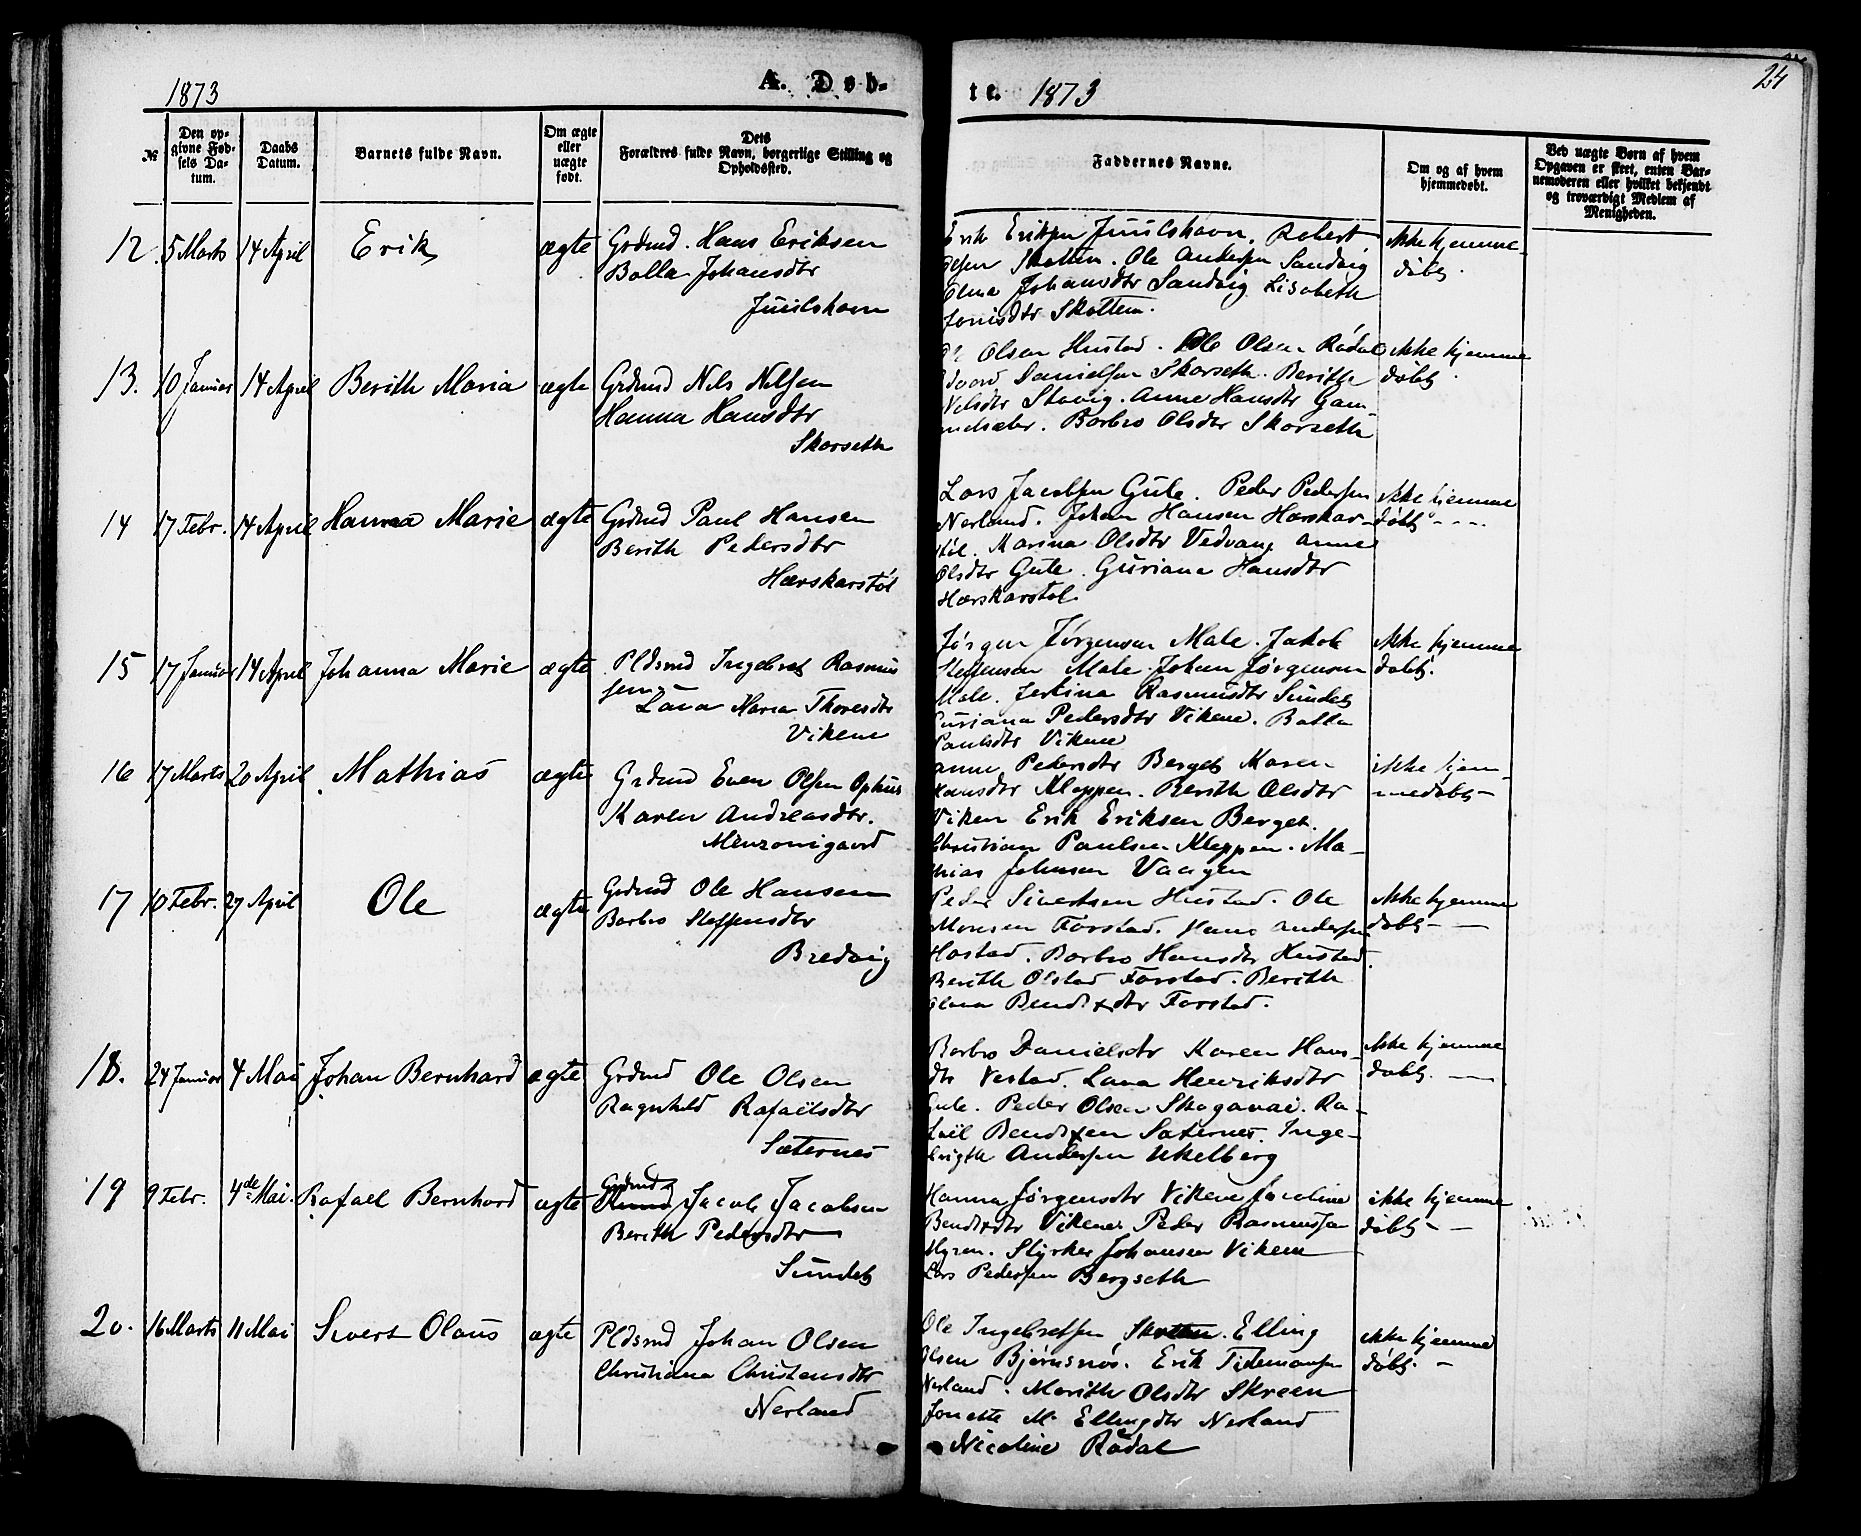 1873 A. Døb-
te. 1873 24
№
Den op-
givne Fød-
sels Da-
tum.
Daabs
Datum.
Barnets fulde Navn.
Om ægte
eller
uægte
født.
Dets
Forældres fulde Navn, borgerlige Stilling og
Opholdssted.
Faddernes Navne.
Om og af hvem
hjemmedøbt.
Ved uægte Børn af hvem
Opgaven er skeet, enten Bar-
nemoderen eller hvilket bekjendt
og troværdigt Medlem af
Menigheden.
12 5 Marts 14 April Erik ægte Grdmd. Hans Eriksen
Balla Johansdtr
Juulshavn
Erik Eriksen Juulshavn, Robert
Olsen Skotten. Ole Andersen Sandvig
Johansdtr Sandvig Lisabeth
Jonisdtr Skottem.
ikke hjemme-
døbt.
13. 10 Januar 14 April Berith Maria ægte Grdmd Nils Nilsen
Hanna Hansdtr
Skorseth
Olsen Hustad. Ole Olsen Rødal
Danielsen Skorseth. Berithe
Nilsdtr Stavig. Anne Hansdtr Gam-
melsæter. Barbro Olsdtr Skorseth
ikke hjemme
døbt.
14 17 Febr. 14 April Hanna Marie ægte Grdmd Paul Hansen
Berith Pedersdtr
Hærskarstøl
Lars Jacobsen Gule. Peder Pedersen
Nerland. Johan Hansen Hærskar-
støl. Marina Olsdtr Vedvang Anne
Olsdtr Gule. Guriana Hansdtr
Hærskarstøl
ikke hjemme
døbt - - - -
15 17 Januar 14 April Johanna Marie ægte Pldsmd Ingebret Rasmus
sen
Lava Maria Thoresdtr
Vikene
Jørgen Jørgensen Male. Jakob
Steffensen Male. Johan Jørgensen
Male. Jertina Rasmusdtr Sundet
Guriana Pedersdtr Vikene. Balla
Paulsdtr Vikene
ikke hjemme
døbt.
16 17 Marts 20 April Mathias ægte Grdmd Even Olsen Ophus
Karen Andreasdtr.
Anne Pedersdtr Berget Maren
Hansdtr Kleppen. Berith Olsdtr
Viken Erik Eriksen Berget.
Christian Paulsen Kleppen. Ma-
thias Johnsen Vaagen
ikke hjem-
medøbt -
17 10 Febr. 27 April Ole ægte Grdmd Ole Hansen
Barbro Steffensdtr
Bredvig
Peder Sivertsen Hustad. Ole
Monsen Farstad. Hans Andersen
Hostad. Barbro Hansdtr Hustad.
Berith Olsdtr Farstad. Berith
Olava Bendixdtr Farstad.
ikke hjemme
døbt - -
18. 24 Januar 4 Mai Johan Bernhard ægte Grdmd Ole Olsen
Ragnhild Rafaelsdtr
Sæternes
Barbro Danielsdtr Karen Hans-
dtr Vestad. Lava Henriksdtr
Gule. Peder Olsen Ra-
fael Bendixen Sæternes. Inge-
brigth Andersen Ukelberg
ikke hjemme
døbt. -
19 9 Febr. 4de Mai. Rafael Bernhard ægte Grdmd Jacob Jacobsen
Berith Pedersdtr
Sundet
Hanna Jørgensdtr Vikene Jacoline
Bendixdtr Vikene Peder Rasmussen
Myren. Styrker Johansen Vikene
Lars Pedersen Bergseth
ikke hjemme
døbt - -
20. 16 Marts 11 Mai Sivert Olaus ægte Pldsmd Johan Olsen
Christiana Christensdtr
Nerland
Ole Ingebretsen Skotten. Elling
Olsen Bjørnsnøs. Erik Tidemansen
Nerland. Marith Olsdtr Skreen
Jonette M. Ellingdtr Nerland
Nicoline Rødal
ikke hjemme
døbt. -